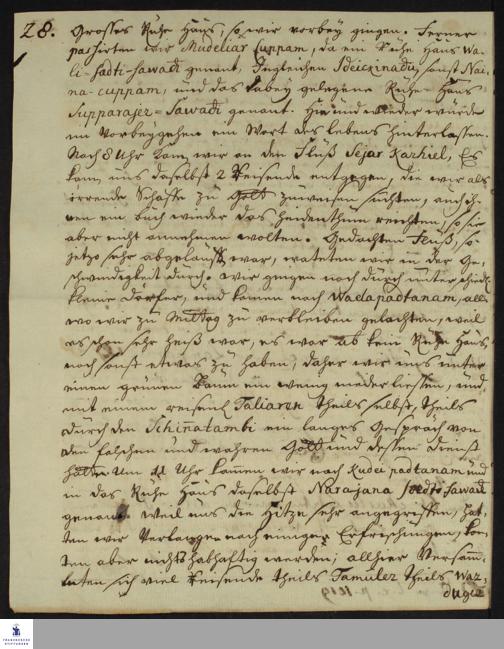 28. Grosses Ruhe Haus, so wir vorbey gingen. Ferner
passirten wir Mudeliar Cuppam, da ein Ruhe Haus Wa-
li-sadti-sawadi genant, Ingleichen sonst Nai-
na-cuppam, und das dabey gelegene Ruhe-Haus
Supparajer-Sawadi genant. Hie und wieder wurde
im Vorbeygehen ein Wort des Lebens hinterlassen.
Nach 8 Uhr kam wir an den Fluß Sejar Karhiel, Es
kam uns daselbst 2 Reisende entgegen, die wir als
irrende Schaffe zu Gott zuweisen suchten, auch
nen ein buch wieder das Heidenthum reichten, so sie
aber nicht annehmen wolten. Gedachten Fluß, so
jetzo sehr abgelauffen war, wateten wir in der Ge-
schwindigkeit durch. Wir gingen noch durch unterschiedl.
kleine Dörfer, und kamen nach Waelapadtanam, all-
wo wir zu Mittag zu verbleiben gedachten, weil
es schon sehr heiß war, es war ab kein Ruhe Haus
noch sonst etwas zu haben, daher wir uns unter
einen grünen Baum ein wenig niederliessen, und
mit einem reisend. Taliaren theils selbst, theils
durch den Schinatambi ein langes Gespräch von
den falschen und wahren Gott und dessen Dienst
hatten. Um 11 Uhr kamen wir nach Kudei padtanam und
in das Ruhe Haus daselbst Narajana Sawadi
genant. Weil uns die Hitze sehr angegriffen, hat-
ten wir Verlangen nach einigen Erfrischungen, kon-
ten aber nichts habhafftig werden; allhier versamm-
leten sich viel Reisende theils Tamuler theils War-
duger